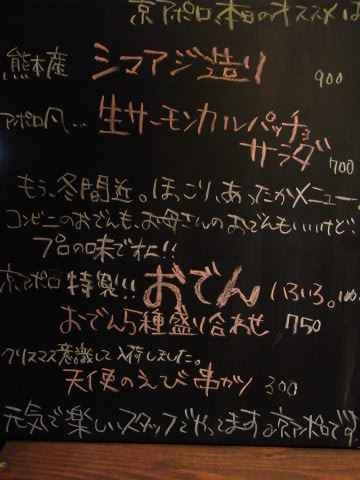 京アポロ、本日のオススメは
熊本産 シマアジ造り 900
アポロ風… 生サーモンカルパッチョ
サラダ 700
もう、冬間近。ほっこり、あったかメニュー。
コンビニのおでんも、お母さんのおでんもいいけど、
プロの味ですよ!!
京アポロ特製!! おでん いろいろ。
おでん5種盛り合わせ 750
クリスマス意識して入荷しました。
天使のえび串カツ 300
元気で楽しいスタッフでやってます♪京アポロです